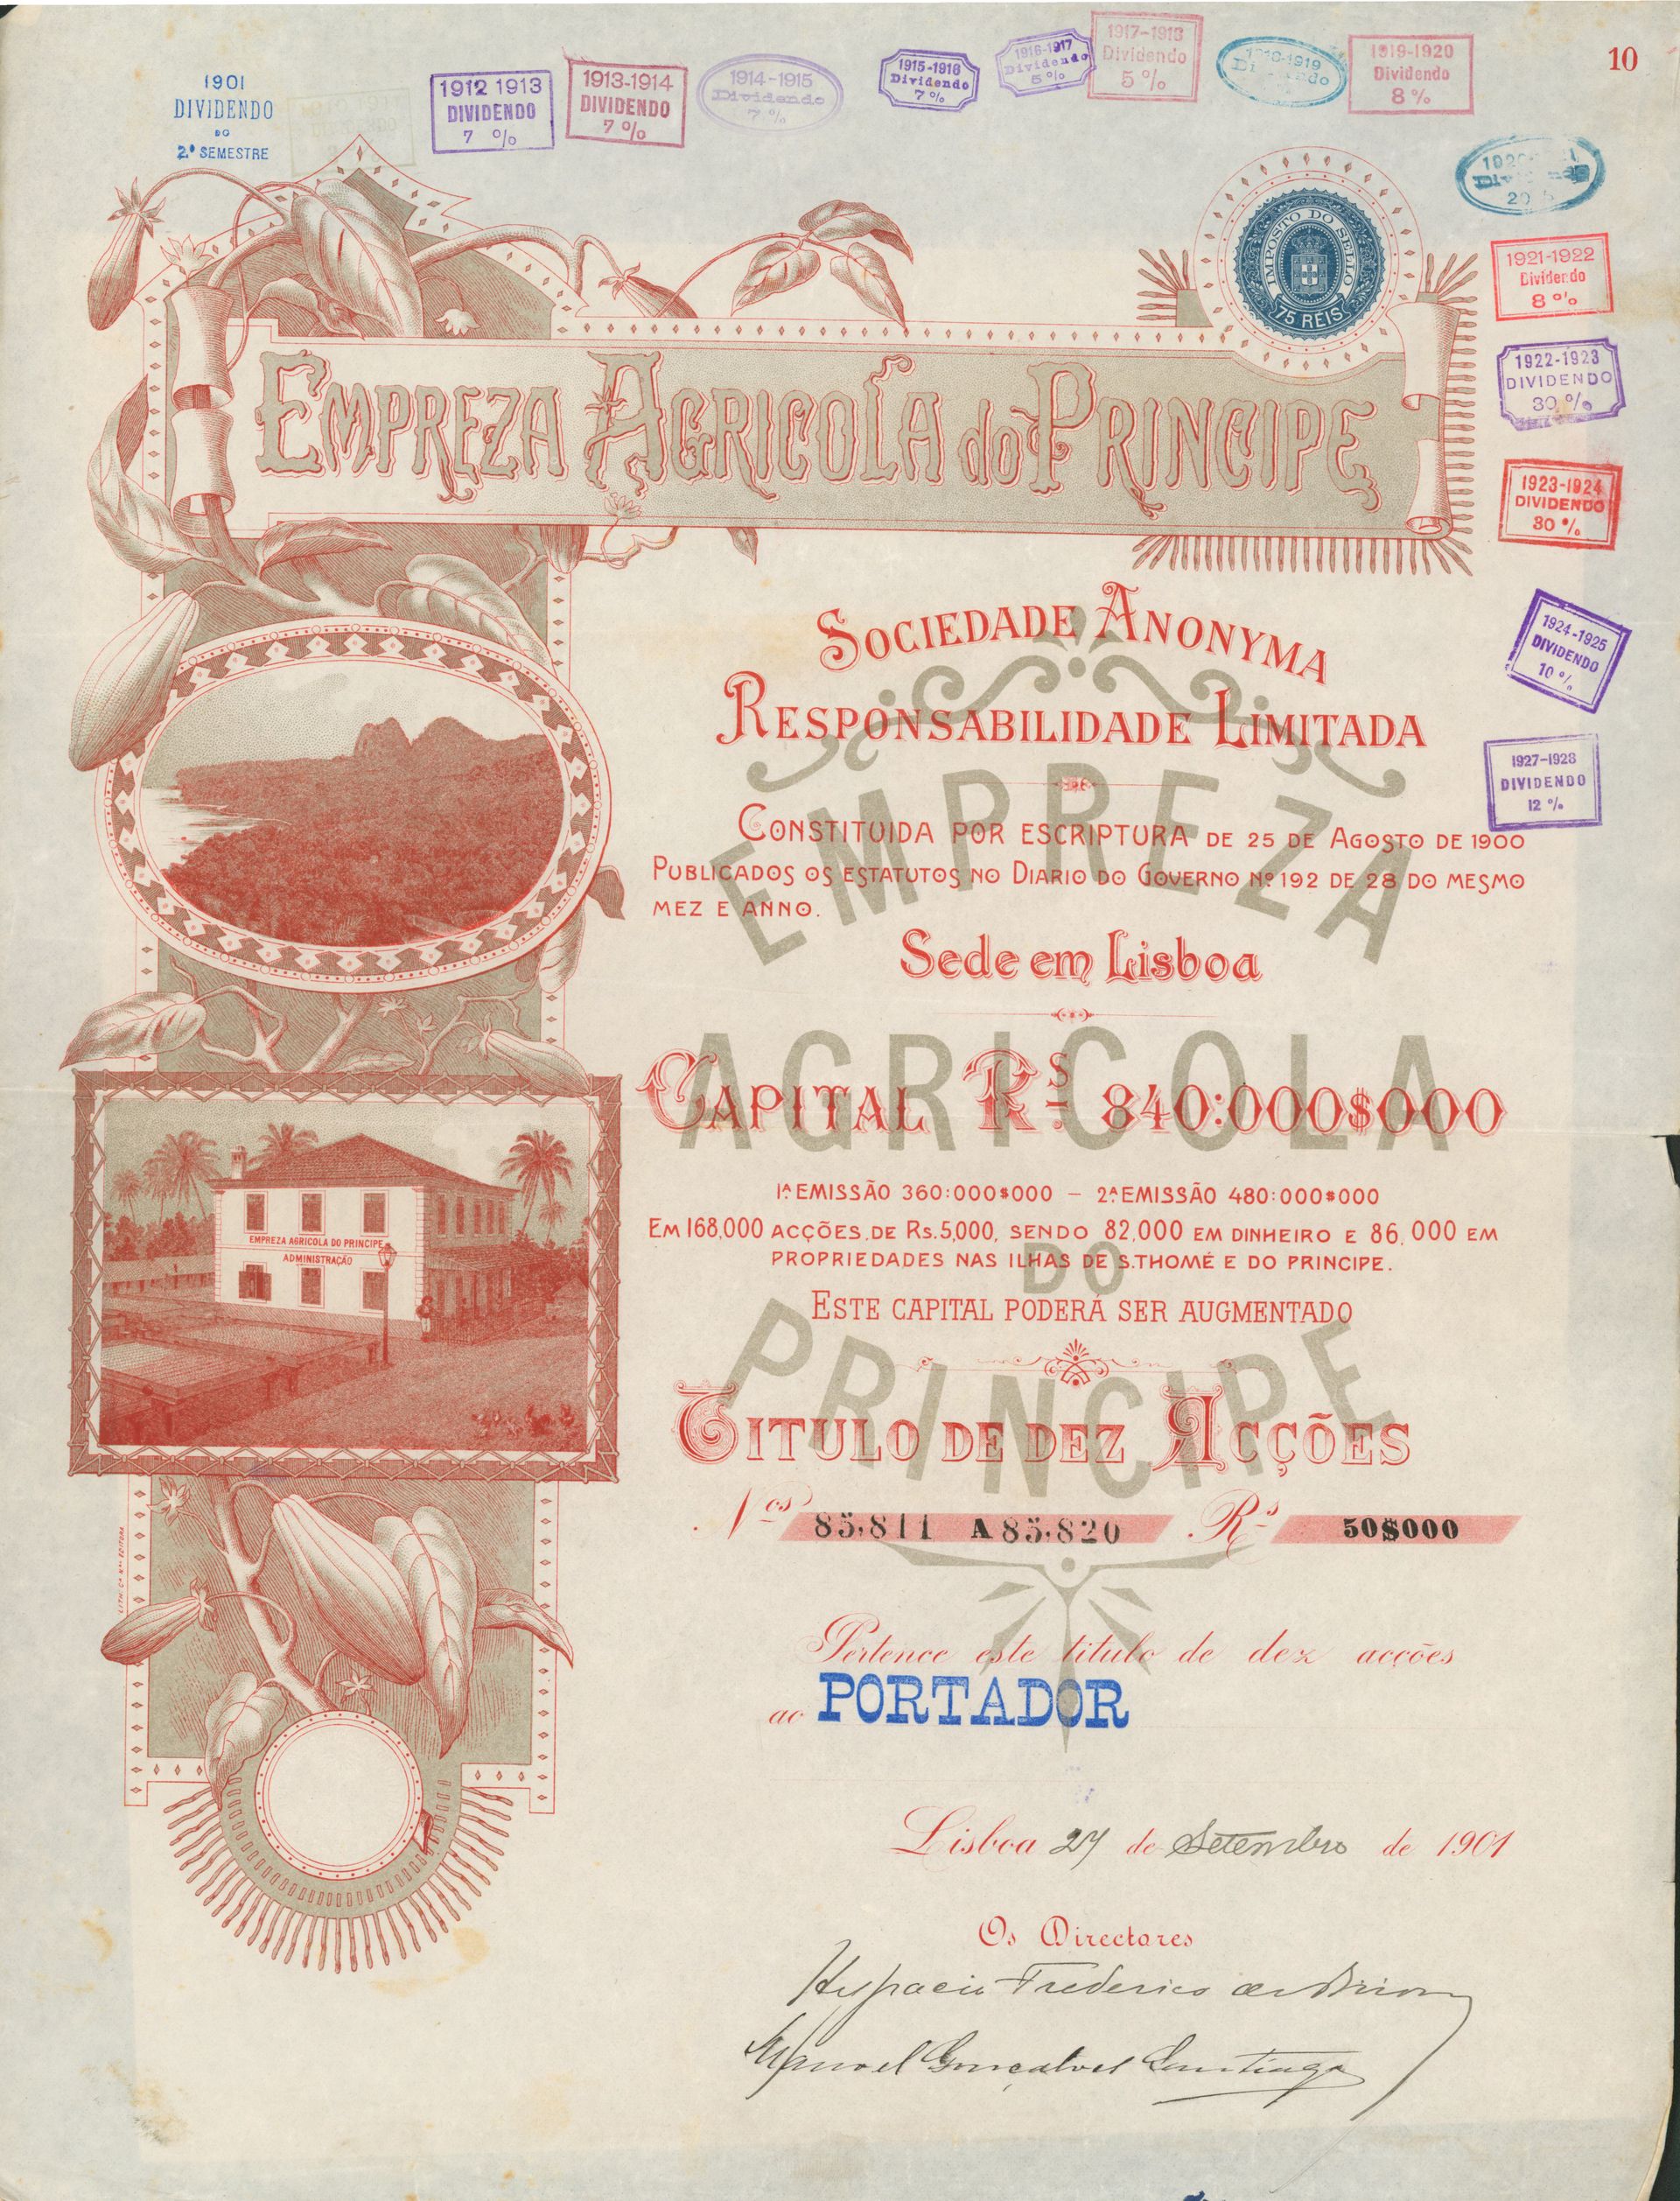 10
1901
DIVIDENDO
DO
2º SEMESTRE
1912 1913
DIVIDENDO
7 %
1913-1914
DIVIDENDO
7 %
1914-1915
Dividendo
7 %
1915-1916
Dividendo
7 %
1916-1917
Dividendo
5 %
1917-1918
Dividendo
5 %
1919-1920
Dividendo
8 %
1921-1922
Dividendo
8 %
1922-1923
DIVIDENDO
30 %
1923-1924
DIVIDENDO
30 %
1924-1925
DIVIDENDO
10 %
1927-1928
DIVIDENDO
12 %
IMPOSTO DO SELLO
75 RÉIS
EMPREZA AGRICOLA do PRINCIPE
SOCIEDADE ANONYMA
RESPONSABILIDADE LIMITADA
CONSTITUIDA POR ESCRIPTURA DE 25 DE AGOSTO DE 1900
PUBLICADOS OS ESTATUTOS NO DIARIO DO GOVERNO Nº 192 DE 28 DO MESMO
MEZ E ANNO.
Sede em Lisboa
CAPITAL Rs. 840:000$000
1ª EMISSÃO 360:000$000 — 2ª EMISSÃO 480:000$000
EM 168,000 ACÇÕES, DE Rs. 5,000, SENDO 82,000 EM DINHEIRO E 86,000 EM
PROPRIEDADES NAS ILHAS DE S. THOMÉ E DO PRINCIPE.
ESTE CAPITAL PODERÁ SER AUGMENTADO
TITULO DE DEZ ACÇÕES
Nos 85,811 A 85,820 Rs 50$000
Pertence este titulo de dez acções
ao PORTADOR
Lisboa 27 de Setembro de 1901
Os Directores
Frederico
Manoel Gonçalves Santiago
EMPREZA
AGRICOLA
DO
PRINCIPE
EMPREZA AGRICOLA DO PRINCIPE
ADMINISTRAÇÃO